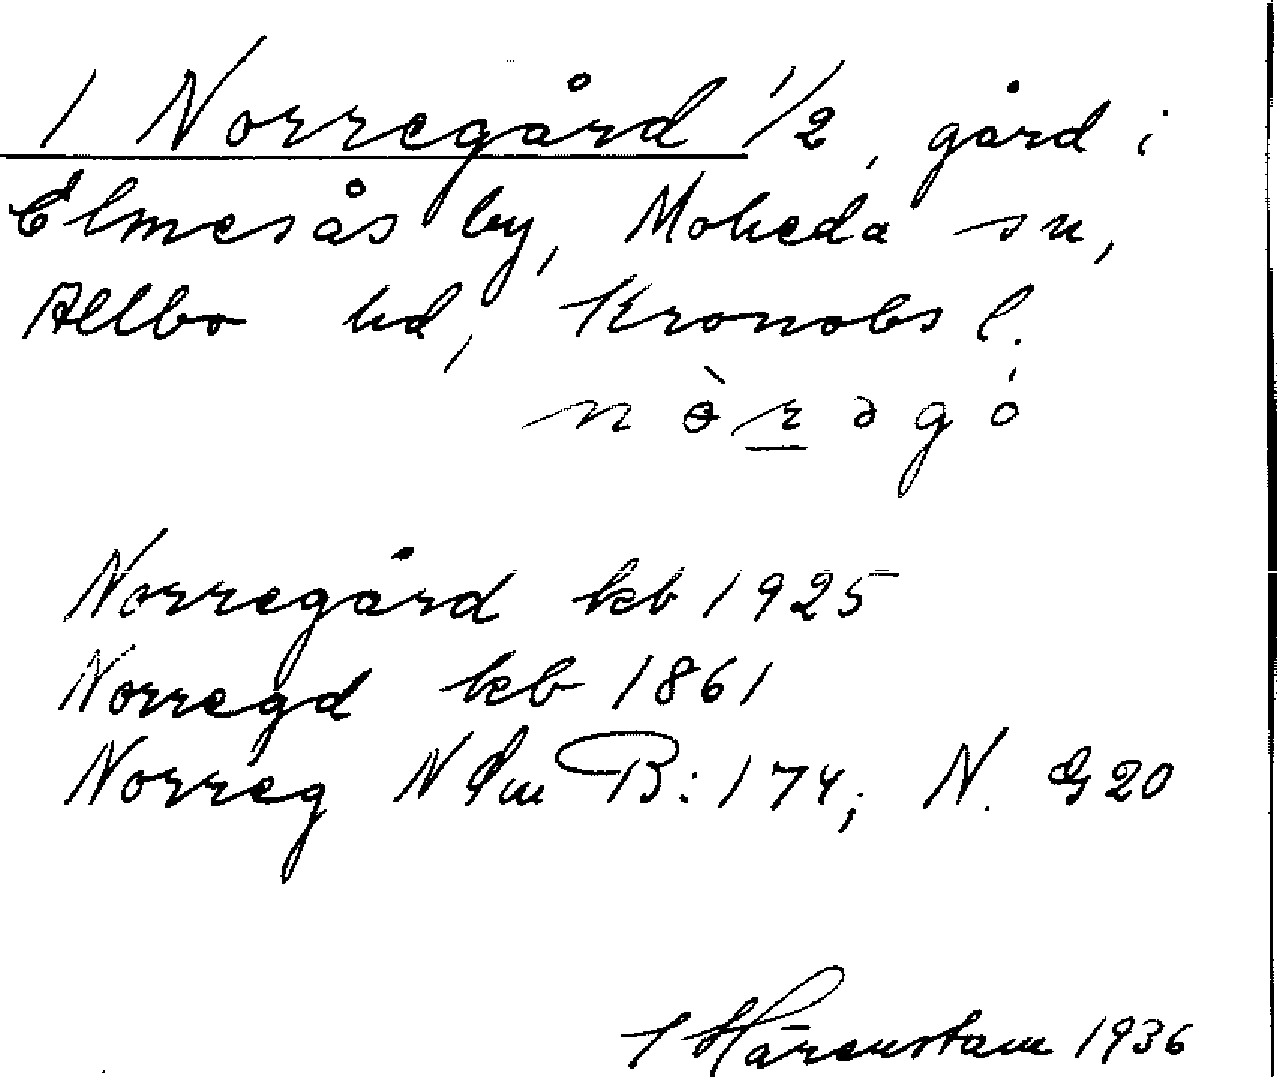 1 Norregård 1/2, gård i
Elmesås by, Moheda sn,
Allbo hd, Kronobs l.
nɵ̀rəgó
Norregård kb 1925
Norregd kb 1861
Norreg N Sm B:174; N. G20
Härenstam 1936